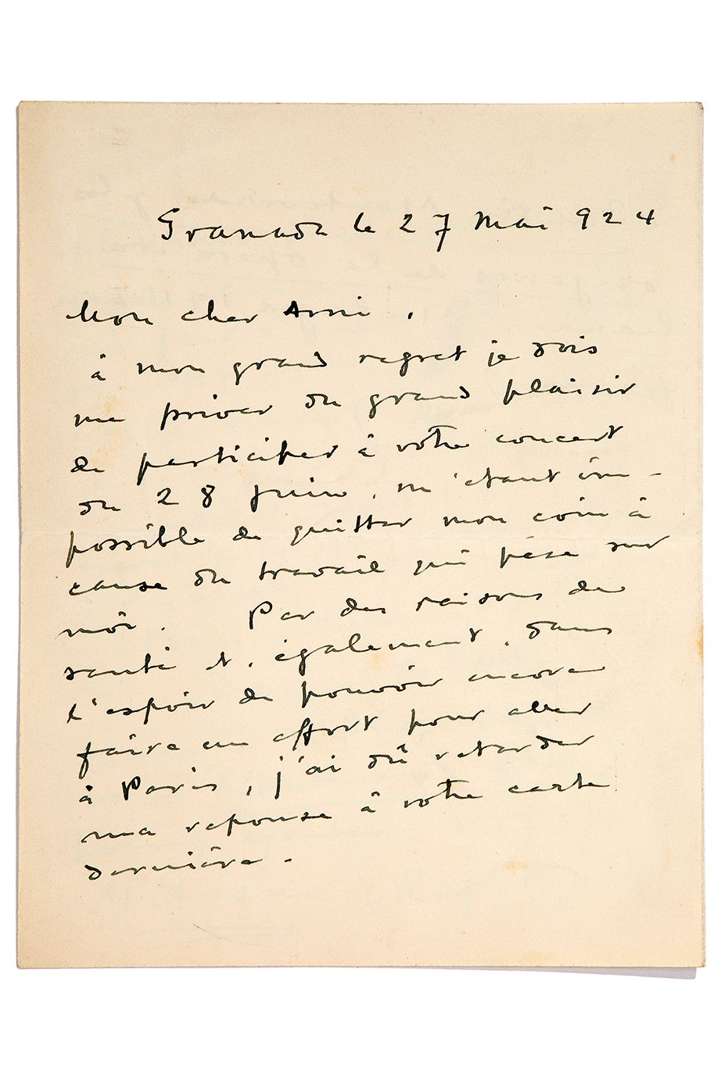 Granada le 27 Mai 924
Mon cher Ami,
à mon grand regret je dois
me priver du grand plaisir
de participer à votre concert
du 28 juin, m'étant im-
possible de quitter mon coin à
cause du travail qui pèse sur
moi. Par des raisons de
santé et, également, dans
l'espoir de pouvoir encore
faire un effort pour aller
à Paris, j'ai dû retarder
ma reponse à votre carte
dernière.